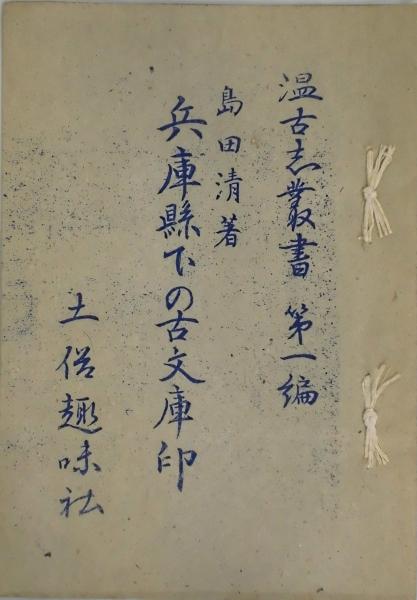 温古志叢書 第一編
島田清著
兵庫縣下の古文庫印
土俗趣味社